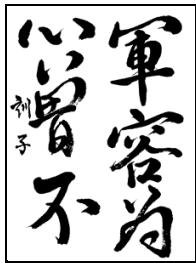 軍容為
心曽不
訓子